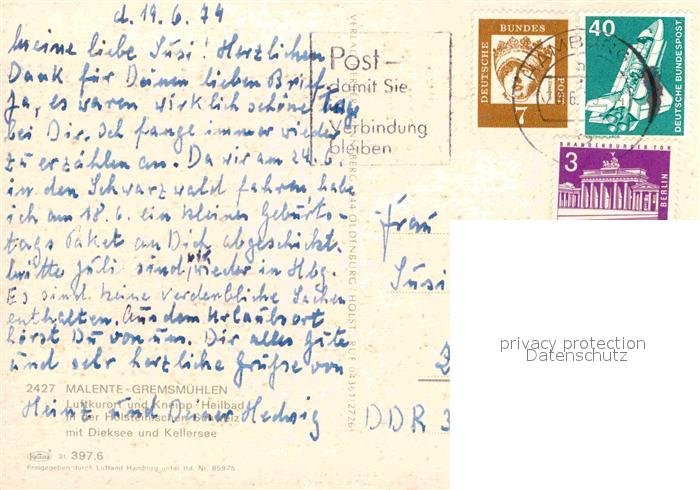 d. 19.6.79
Meine liebe Susi! Herzlichen
Dank für Deinen lieben Brief.
Ja, es waren wirklich schöne Tage
bei Dir. Ich fange immer wieder
zu erzählen an. Da wir am 24.6.
in den Schwarzwald fahren habe
ich am 18.6. ein kleines Geburts-
tags Paket an Dich abgeschickt.
Mitte Juli sind wir wieder in Hbg.
Es sind keine verderbliche Sachen
enthalten. Aus dem Urlaubsort
hörst Du von uns. Dir alles Gute
und sehr herzliche Grüße von
Heinz und Deiner Hedwig
2427 MALENTE-GREMSMÜHLEN
Luftkurort und Kneipp-Heilbad
in der Holsteinischen Schweiz
mit Dieksee und Kellersee
21 397.6
Freigegeben durch Luftamt Hamburg unter lfd. Nr. 85975
OLDENBURG/HOLST. RUF 04361-2726
Post-
damit Sie
in
Verbindung
bleiben
HAMBURG
DEUTSCHE
BUNDES
POST
7
40
DEUTSCHE BUNDESPOST
3
BRANDENBURGER TOR
BERLIN
Frau
Susi
DDR 3
privacy protection
Datenschutz